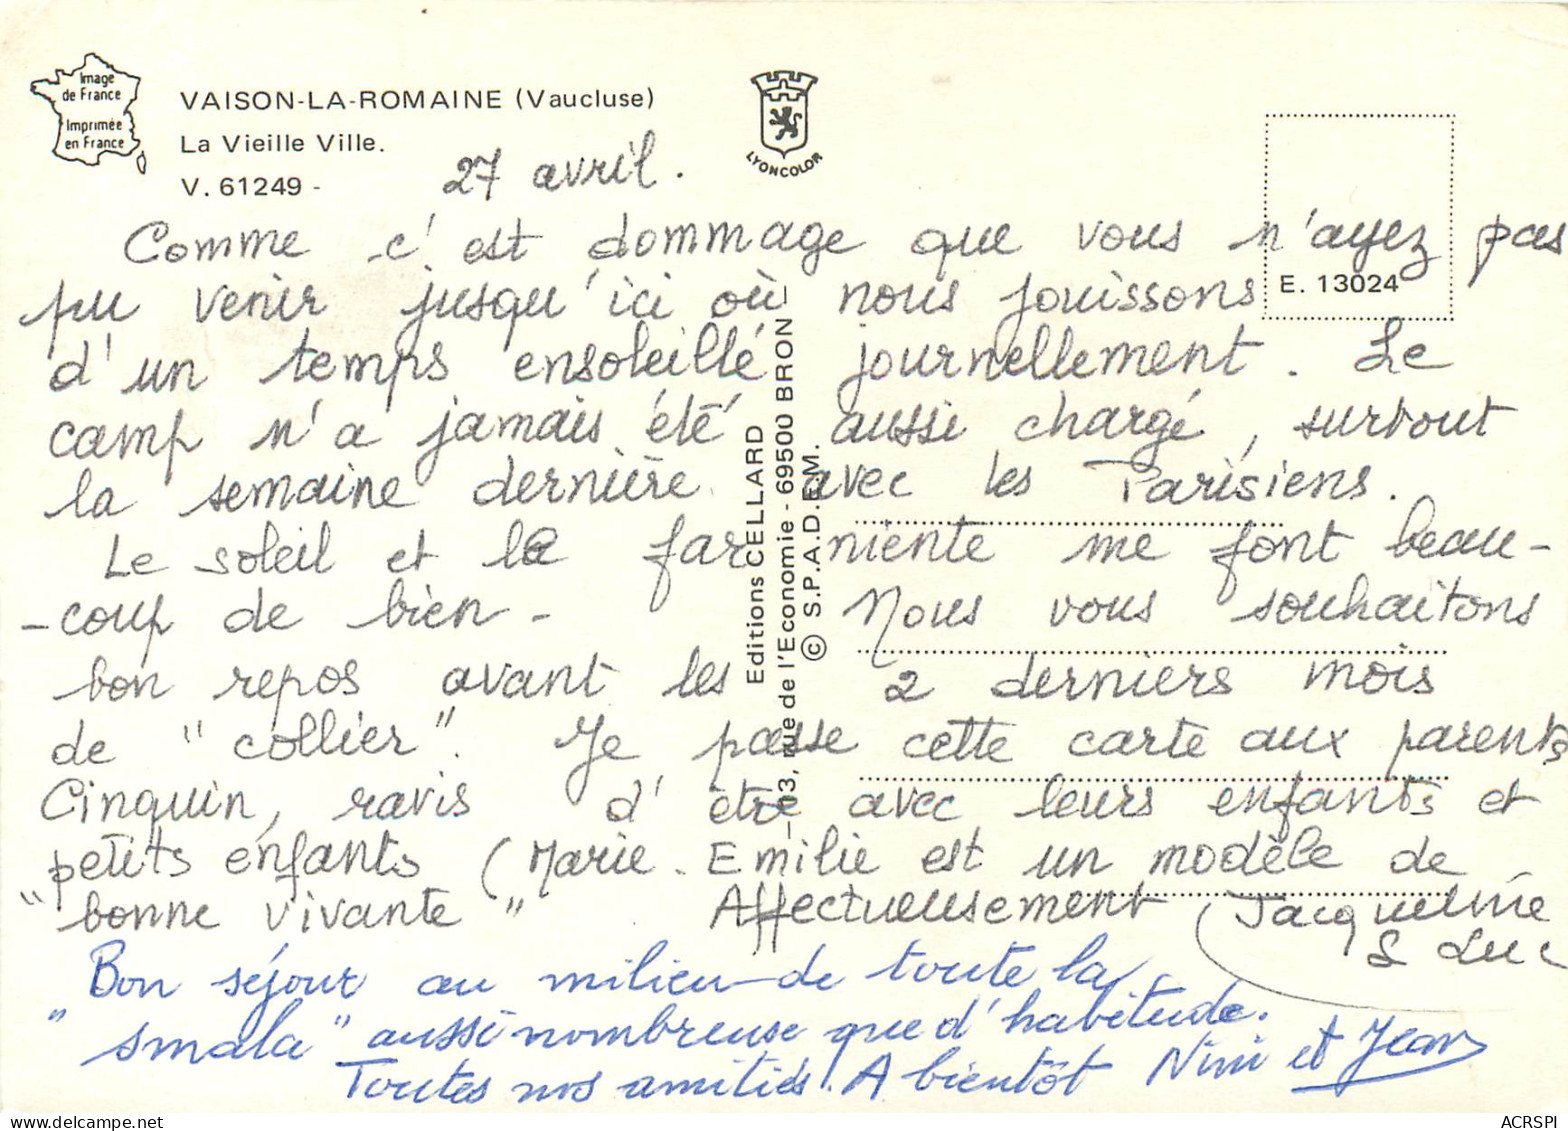 Image
de France
Imprimée
en France
VAISON-LA-ROMAINE (Vaucluse)
La Vieille Ville.
V. 61249 -
LYONCOLOR
E. 13024
27 avril.
Comme c'est dommage que vous n'ayez pas
pu venir jusqu'ici où nous jouissons
d'un temps ensoleillé journellement. Le
camp n'a jamais été aussi chargé, surtout
la semaine dernière avec les Parisiens.
Le soleil et le far niente me font beau-
-coup de bien - Nous vous souhaitons
bon repos avant les 2 derniers mois
de "collier". Je passe cette carte aux parents
Cinquin, ravis d'être avec leurs enfants et
petits enfants (Marie-Emilie est un modèle de
"bonne vivante" Affectueusement Jacqueline
& Luc
Bon séjour au milieu de toute la
"smala" aussi nombreuse que d'habitude.
Toutes nos amitiés. A bientôt Nini et Jean
Editions CELLARD
93, rue de l'Economie - 69500 BRON
© S.P.A.D.E.M.
ACRSPI